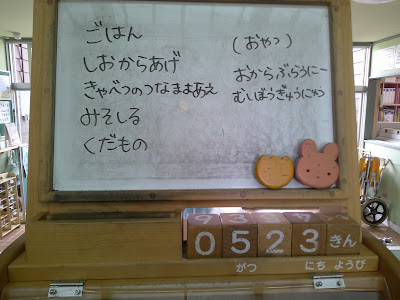 ごはん
しおからあげ
きゃべつのつなまよあえ
みそしる
くだもの
(おやつ)
おからぶらうにー
むしぼうぎゅうにゅう
0523きん
がつ にち ようび